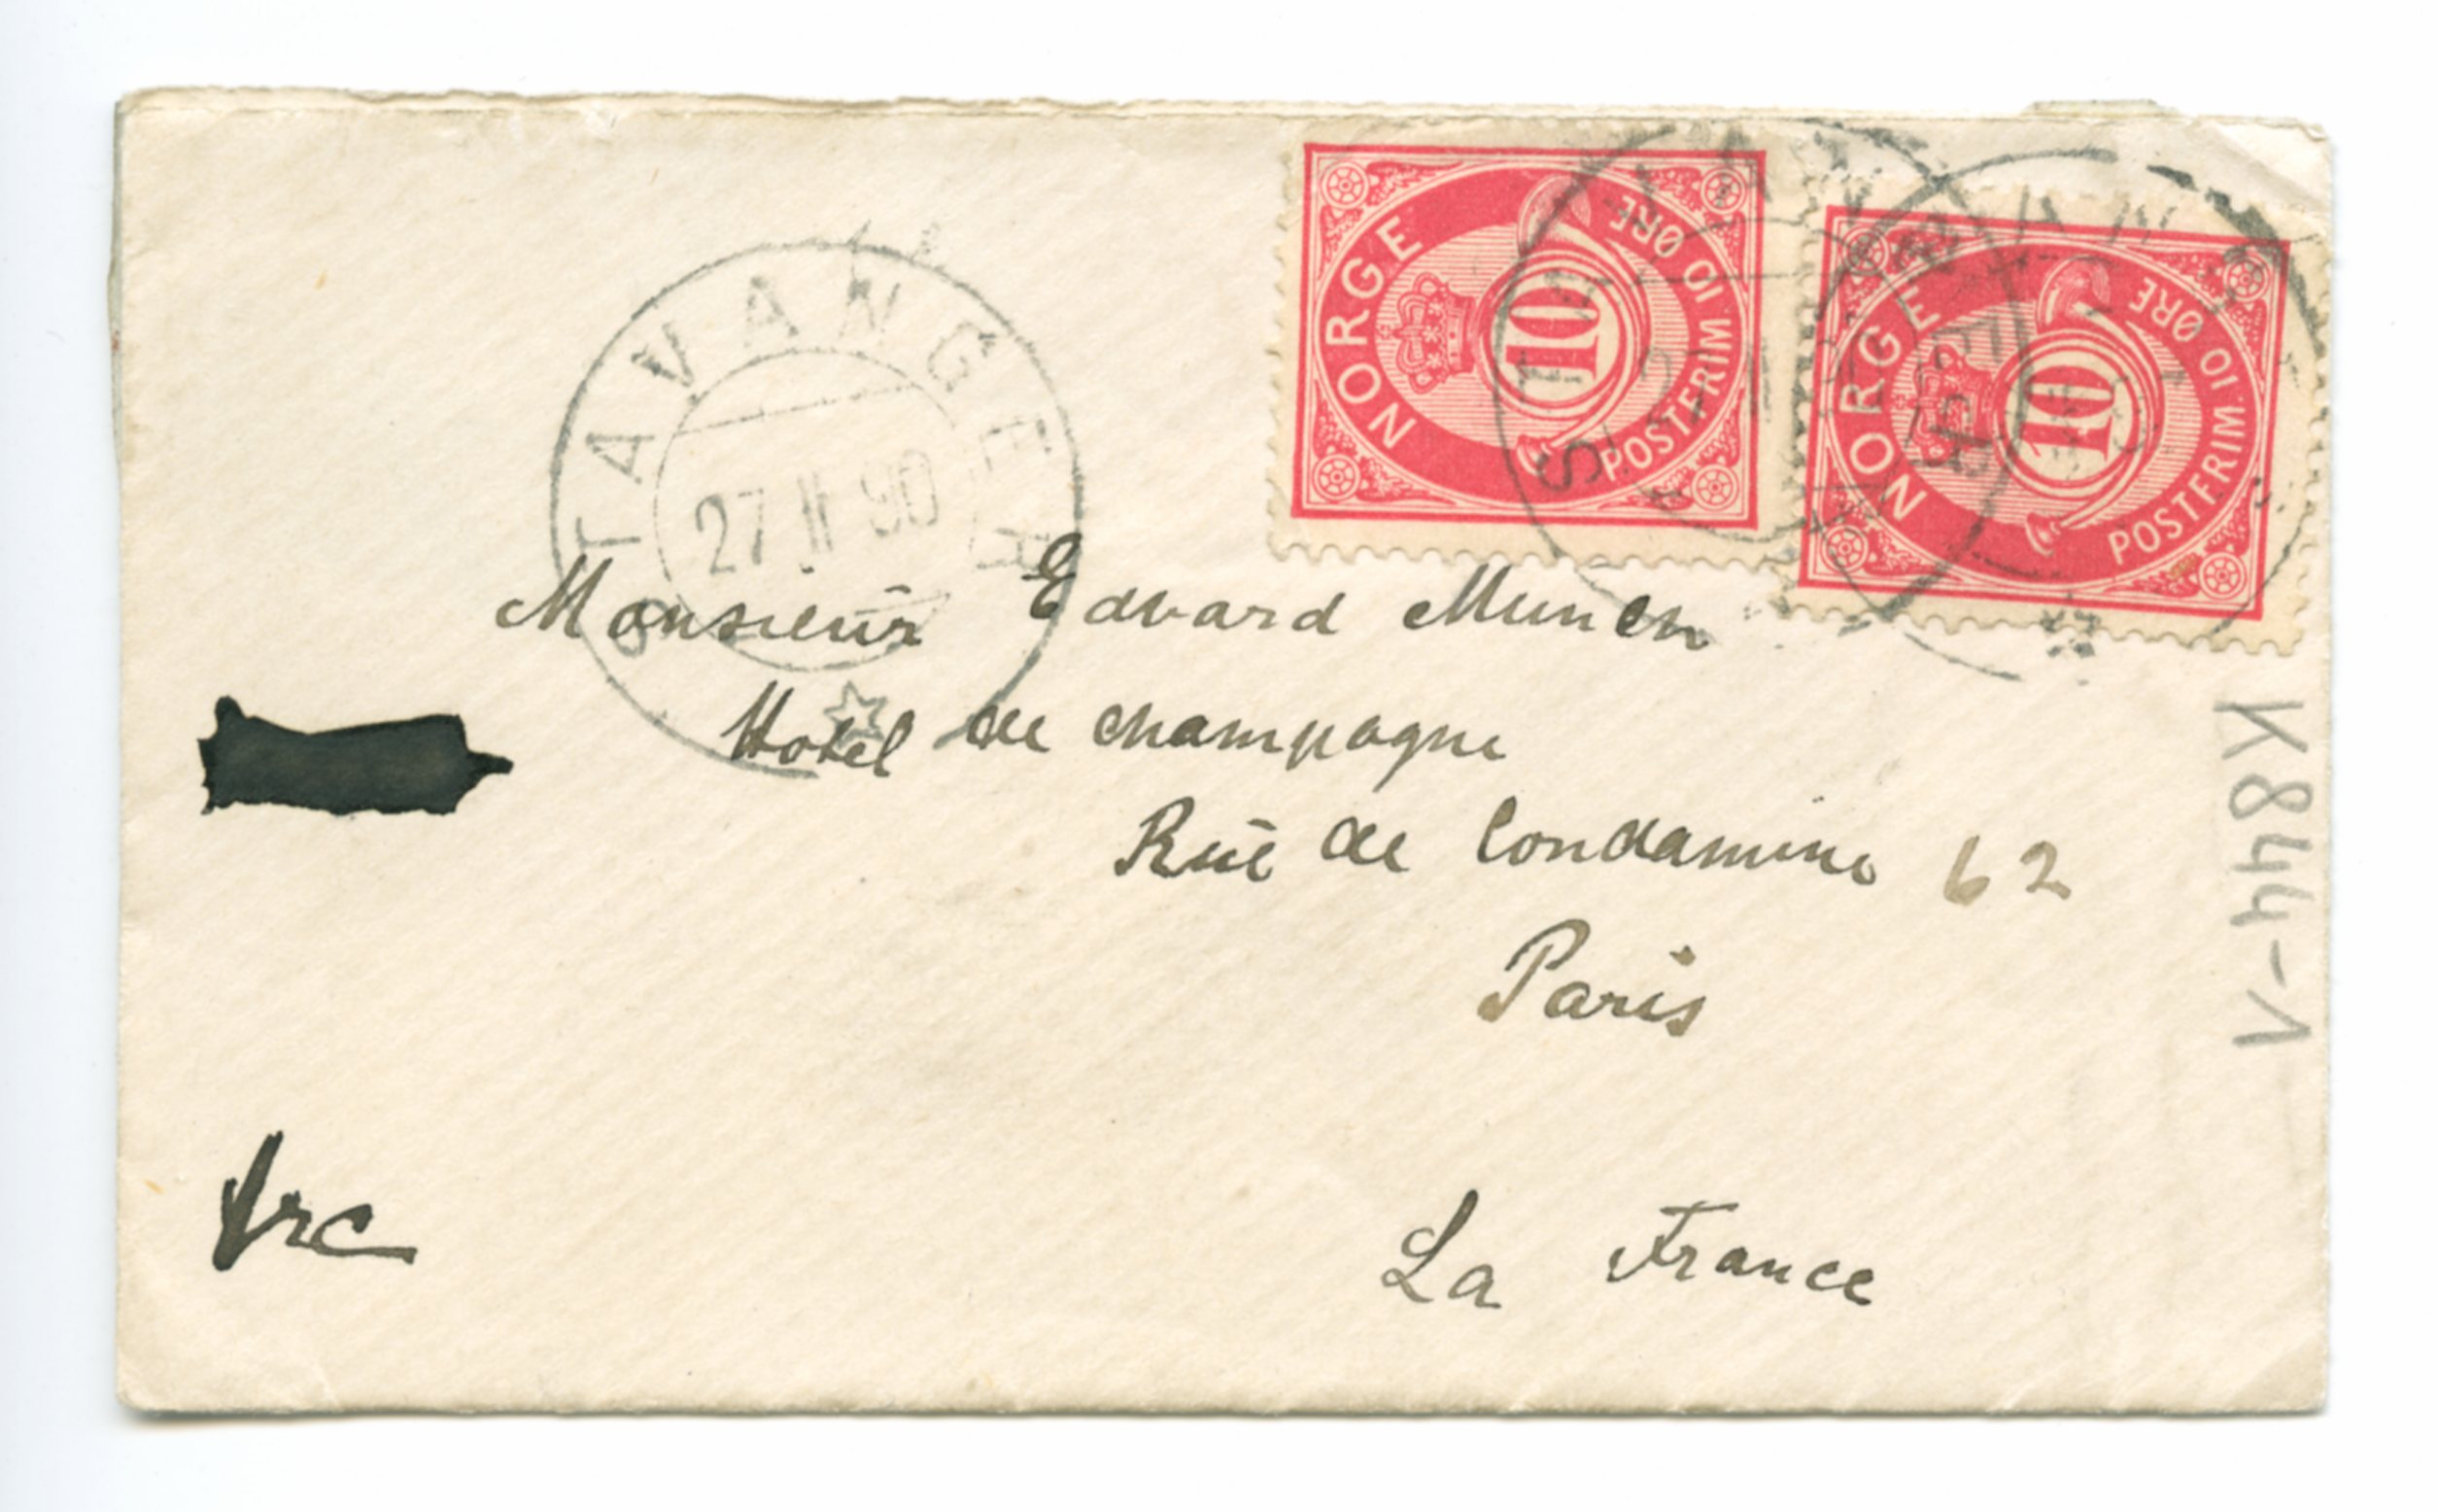 STAVANGER
27 II 90
NORGE
10
POSTFRIM 10 ØRE
NORGE
10
POSTFRIM 10 ØRE
Monsieur Edvard Munch
Hotel de champagne
Rue de Condamine 62
Paris
frc
La France
K844-1